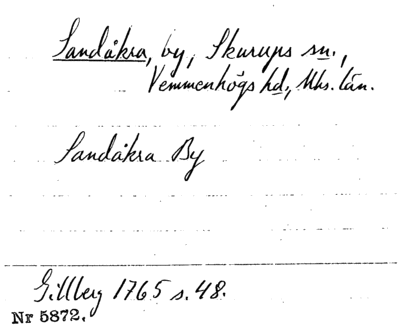 Sandåkra, by, Skurups sn.,
Vemmenhögs hd., Mhs. län.
Sandåkra By
Gillberg 1765 s. 48.
Nr 5872.